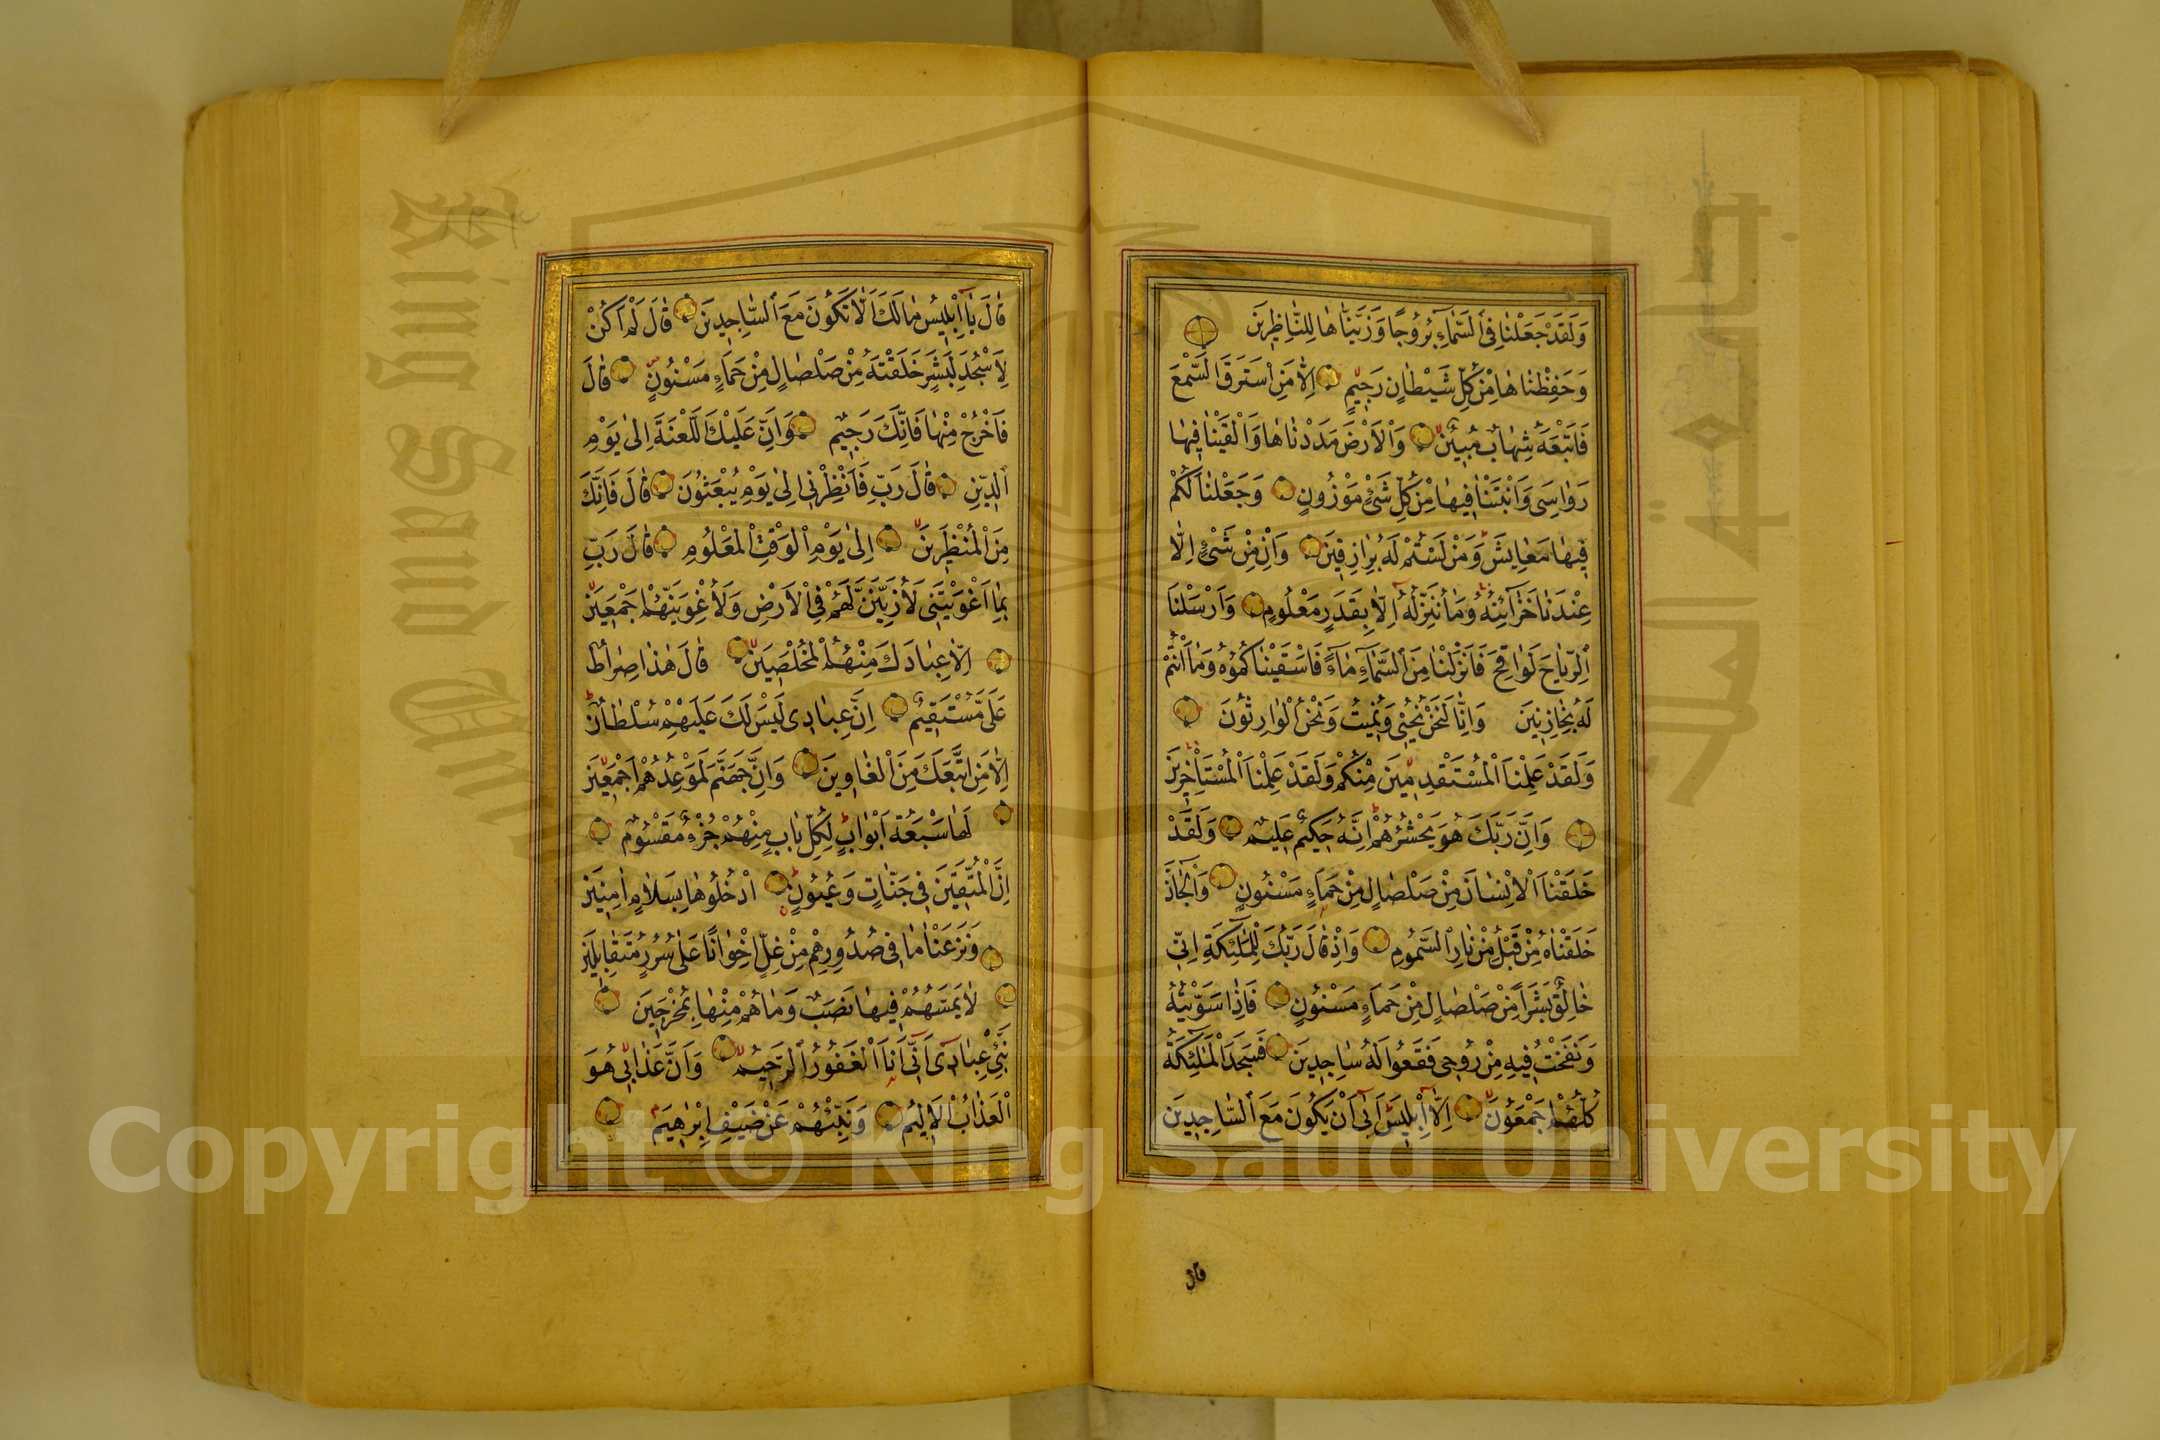 وَلَقَدْ جَعَلْنَا فِي السَّمَاءِ بُرُوجًا وَزَيَّنَّاهَا لِلنَّاظِرِينَ
وَحَفِظْنَاهَا مِنْ كُلِّ شَيْطَانٍ رَجِيمٍ إِلَّا مَنِ اسْتَرَقَ السَّمْعَ
فَأَتْبَعَهُ شِهَابٌ مُبِينٌ وَالْأَرْضَ مَدَدْنَاهَا وَأَلْقَيْنَا فِيهَا
رَوَاسِيَ وَأَنْبَتْنَا فِيهَا مِنْ كُلِّ شَيْءٍ مَوْزُونٍ وَجَعَلْنَا لَكُمْ
فِيهَا مَعَايِشَ وَمَنْ لَسْتُمْ لَهُ بِرَازِقِينَ وَإِنْ مِنْ شَيْءٍ إِلَّا
عِنْدَنَا خَزَائِنُهُ وَمَا نُنَزِّلُهُ إِلَّا بِقَدَرٍ مَعْلُومٍ وَأَرْسَلْنَا
الرِّيَاحَ لَوَاقِحَ فَأَنْزَلْنَا مِنَ السَّمَاءِ مَاءً فَأَسْقَيْنَاكُمُوهُ وَمَا أَنْتُمْ
لَهُ بِخَازِنِينَ وَإِنَّا لَنَحْنُ نُحْيِي وَنُمِيتُ وَنَحْنُ الْوَارِثُونَ
وَلَقَدْ عَلِمْنَا الْمُسْتَقْدِمِينَ مِنْكُمْ وَلَقَدْ عَلِمْنَا الْمُسْتَأْخِرِينَ
وَإِنَّ رَبَّكَ هُوَ يَحْشُرُهُمْ إِنَّهُ حَكِيمٌ عَلِيمٌ وَلَقَدْ
خَلَقْنَا الْإِنْسَانَ مِنْ صَلْصَالٍ مِنْ حَمَإٍ مَسْنُونٍ وَالْجَانَّ
خَلَقْنَاهُ مِنْ قَبْلُ مِنْ نَارِ السَّمُومِ وَإِذْ قَالَ رَبُّكَ لِلْمَلٰئِكَةِ إِنِّي
خَالِقٌ بَشَرًا مِنْ صَلْصَالٍ مِنْ حَمَإٍ مَسْنُونٍ فَإِذَا سَوَّيْتُهُ
وَنَفَخْتُ فِيهِ مِنْ رُوحِي فَقَعُوا لَهُ سَاجِدِينَ فَسَجَدَ الْمَلٰئِكَةُ
كُلُّهُمْ أَجْمَعُونَ إِلَّا إِبْلِيسَ أَبَى أَنْ يَكُونَ مَعَ السَّاجِدِينَ
قال
قَالَ يَا إِبْلِيسُ مَا لَكَ أَلَّا تَكُونَ مَعَ السَّاجِدِينَ قَالَ لَمْ أَكُنْ
لِأَسْجُدَ لِبَشَرٍ خَلَقْتَهُ مِنْ صَلْصَالٍ مِنْ حَمَإٍ مَسْنُونٍ قَالَ
فَاخْرُجْ مِنْهَا فَإِنَّكَ رَجِيمٌ وَإِنَّ عَلَيْكَ اللَّعْنَةَ إِلَى يَوْمِ
الدِّينِ قَالَ رَبِّ فَأَنْظِرْنِي إِلَى يَوْمِ يُبْعَثُونَ قَالَ فَإِنَّكَ
مِنَ الْمُنْظَرِينَ إِلَى يَوْمِ الْوَقْتِ الْمَعْلُومِ قَالَ رَبِّ
بِمَا أَغْوَيْتَنِي لَأُزَيِّنَنَّ لَهُمْ فِي الْأَرْضِ وَلَأُغْوِيَنَّهُمْ أَجْمَعِينَ
إِلَّا عِبَادَكَ مِنْهُمُ الْمُخْلَصِينَ قَالَ هٰذَا صِرَاطٌ
عَلَيَّ مُسْتَقِيمٌ إِنَّ عِبَادِي لَيْسَ لَكَ عَلَيْهِمْ سُلْطَانٌ
إِلَّا مَنِ اتَّبَعَكَ مِنَ الْغَاوِينَ وَإِنَّ جَهَنَّمَ لَمَوْعِدُهُمْ أَجْمَعِينَ
لَهَا سَبْعَةُ أَبْوَابٍ لِكُلِّ بَابٍ مِنْهُمْ جُزْءٌ مَقْسُومٌ
إِنَّ الْمُتَّقِينَ فِي جَنَّاتٍ وَعُيُونٍ ادْخُلُوهَا بِسَلَامٍ آمِنِينَ
وَنَزَعْنَا مَا فِي صُدُورِهِمْ مِنْ غِلٍّ إِخْوَانًا عَلَى سُرُرٍ مُتَقَابِلِينَ
لَا يَمَسُّهُمْ فِيهَا نَصَبٌ وَمَا هُمْ مِنْهَا بِمُخْرَجِينَ
نَبِّئْ عِبَادِي أَنِّي أَنَا الْغَفُورُ الرَّحِيمُ وَأَنَّ عَذَابِي هُوَ
الْعَذَابُ الْأَلِيمُ وَنَبِّئْهُمْ عَنْ ضَيْفِ إِبْرٰهِيمَ
King Saud University
جامعة الملك سعود
1957
Copyright © King Saud University